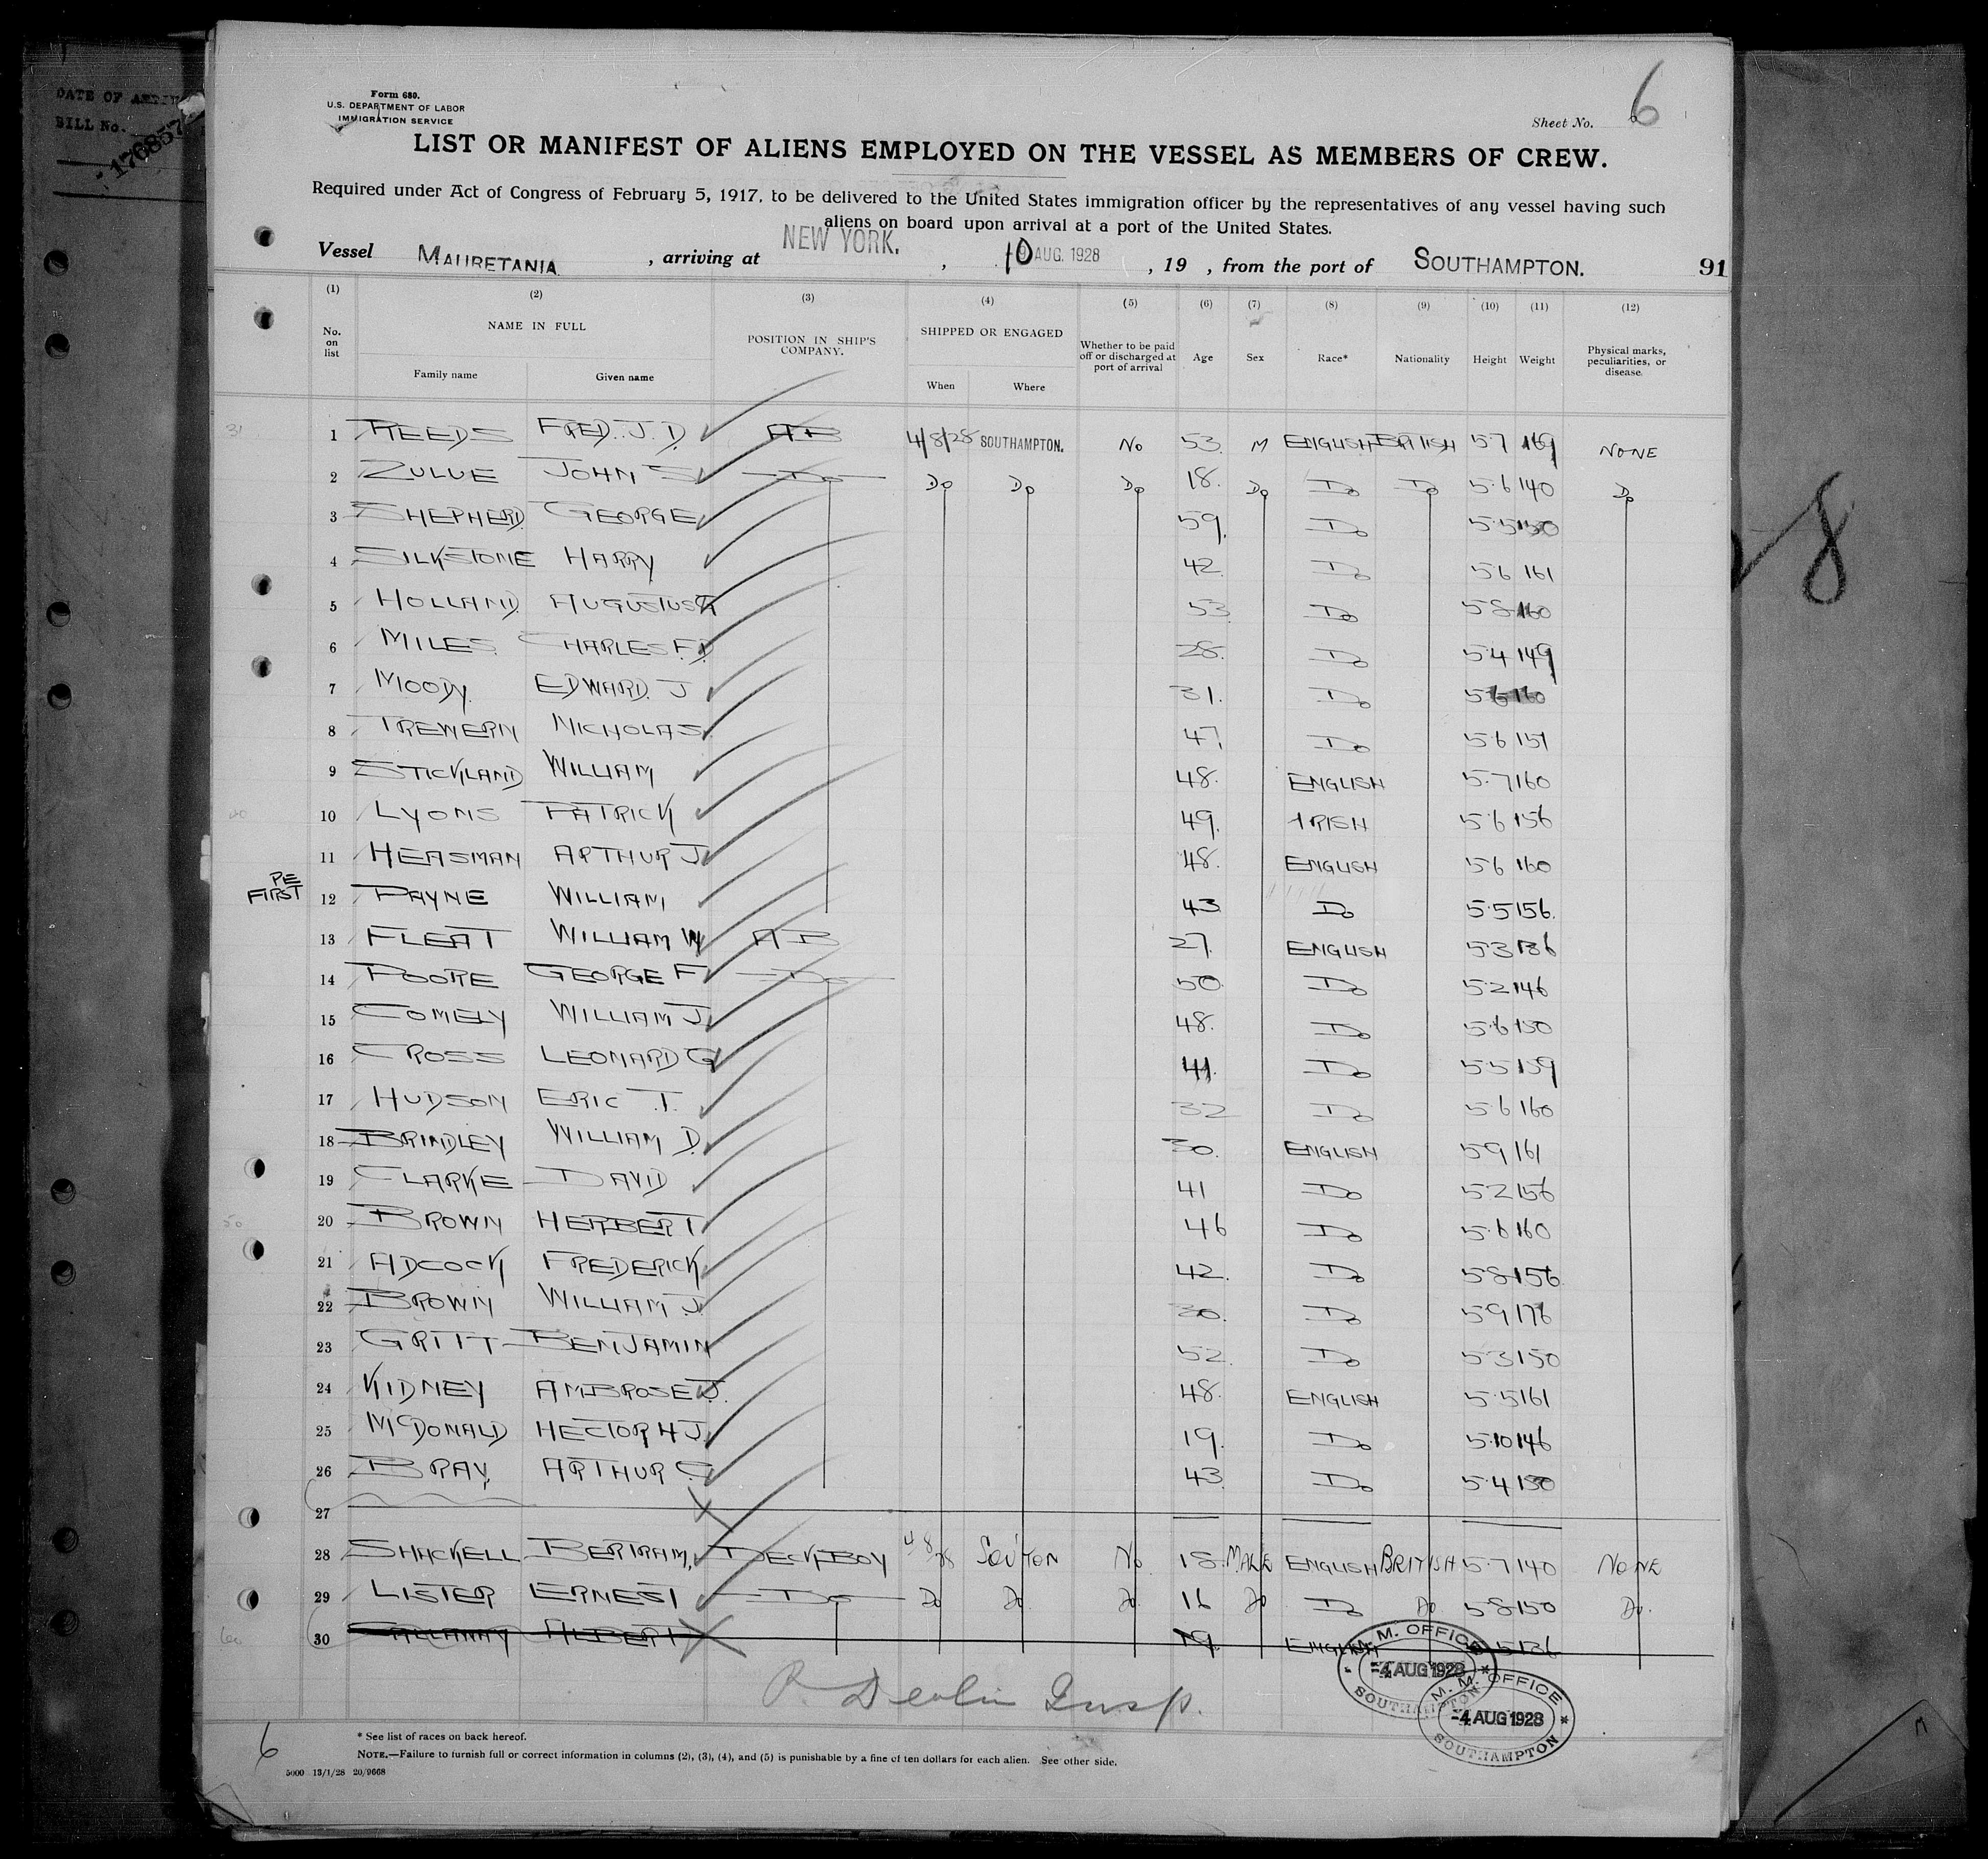 DATE OF
BILL No.
176857
Form 680.
U.S. DEPARTMENT OF LABOR
IMMIGRATION SERVICE
Sheet No. 6
LIST OR MANIFEST OF ALIENS EMPLOYED ON THE VESSEL AS MEMBERS OF CREW.
Required under Act of Congress of February 5, 1917, to be delivered to the United States immigration officer by the representatives of any vessel having such
aliens on board upon arrival at a port of the United States.
Vessel MAURETANIA , arriving at NEW YORK. , 10 AUG. 1928 , 19 , from the port of SOUTHAMPTON. 91
(1) (2) (3) (4) (5) (6) (7) (8) (9) (10) (11) (12)
No. on list NAME IN FULL POSITION IN SHIP'S COMPANY. SHIPPED OR ENGAGED Whether to be paid off or discharged at port of arrival Age Sex Race* Nationality Height Weight Physical marks, peculiarities, or disease.
Family name Given name When Where
31 1 REEDS FRED. J. D. AB 4/8/28 SOUTHAMPTON. No 53 M ENGLISH BRITISH 5.7 169 NONE
2 ZULUE JOHN S Do Do Do Do 18. Do Do Do 5.6 140 Do
3 SHEPHERD GEORGE 59. Do 5.5 150
4 SILKSTONE HARRY 42. Do 5.6 161
5 HOLLAND AUGUSTUS 53 Do 5.8 160
6 MILES CHARLES F.D 28. Do 5.4 149
7 MOODY EDWARD. J 31. Do 5.6 160
8 TREWERN NICHOLAS 47 Do 5.6 151
9 STICKLAND WILLIAM 48. ENGLISH 5.7 160
40 10 LYONS PATRICK 49. IRISH 5.6 156
11 HEASMAN ARTHUR J 48. ENGLISH 5.6 160
PE
FIRST 12 PAYNE WILLIAM 43 Do 5.5 156.
13 FLEAT WILLIAM W AB 27 ENGLISH 5.3 136
14 POORE GEORGE F Do 50. Do 5.2 146
15 COMELY WILLIAM J 48. Do 5.6 150
16 CROSS LEONARD G 41. Do 5.5 159
17 HUDSON ERIC T. 32 Do 5.6 160
18 BRINDLEY WILLIAM D. 30. ENGLISH 5.9 161
19 CLARKE DAVID 41 Do 5.2 156
50 20 BROWN HERBERT 46 Do 5.6 160
21 ADCOCK FREDERICK 42. Do 5.8 156
22 BROWN WILLIAM J. 30. Do 5.9 176
23 GRITT BENJAMIN 52. Do 5.3 150
24 KIDNEY AMBROSE J. 48. ENGLISH 5.5 161
25 McDONALD HECTOR H J. 19. Do 5.10 146
26 BRAY, ARTHUR G 43 Do 5.4 150
27
28 SHACKELL BERTRAM, DECK BOY 4/8/28 SOU'TON No 18. MALE ENGLISH BRITISH 5.7 140 NONE
29 LISTER ERNEST Do Do Do Do 16 Do Do Do 5.8 150 Do.
60 30 CALLAWAY ALBERT 19. ENGLISH 5 136
P. Devlin Insp.
M. M. OFFICE
-4 AUG 1928 *
SOUTHAMPTON
M. M. OFFICE
-4 AUG 1928 *
SOUTHAMPTON
* See list of races on back hereof.
6
NOTE.—Failure to furnish full or correct information in columns (2), (3), (4), and (5) is punishable by a fine of ten dollars for each alien. See other side.
5000 13/1/28 20/9668
8